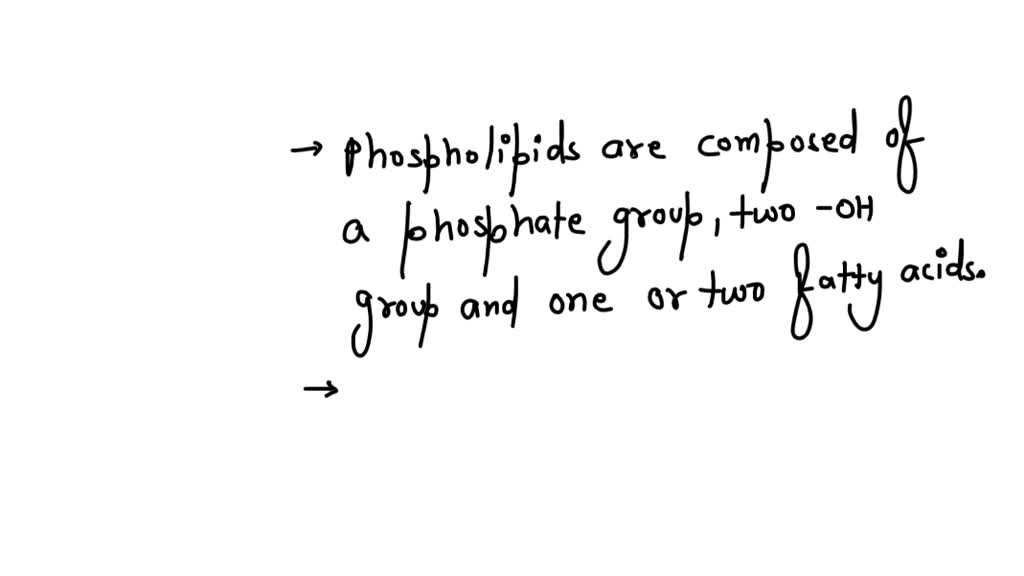 → Phospholipids are composed of
a phosphate group, two -OH
group and one or two fatty acids.
→